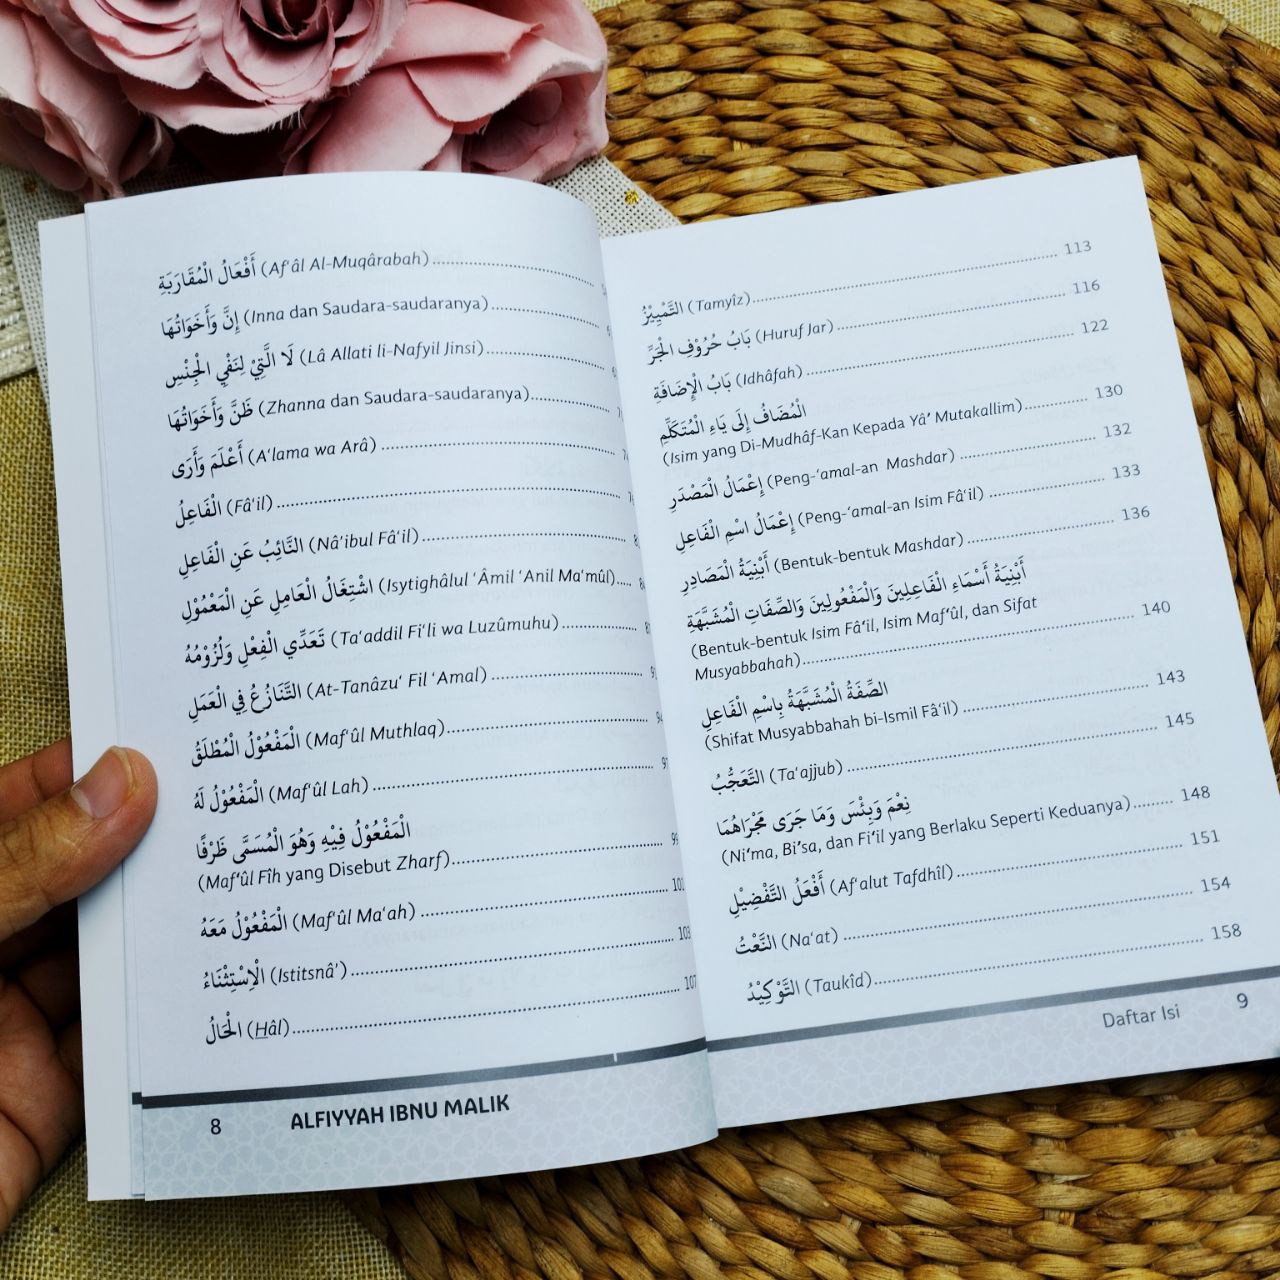 أَفْعَالُ الْمُقَارَبَةِ (Af‘âl Al-Muqârabah)
إِنَّ وَأَخَوَاتُهَا (Inna dan Saudara-saudaranya)
لَا الَّتِيْ لِنَفْيِ الْجِنْسِ (Lâ Allati li-Nafyil Jinsi)
ظَنَّ وَأَخَوَاتُهَا (Zhanna dan Saudara-saudaranya)
أَعْلَمَ وَأَرَى (A‘lama wa Arâ)
الْفَاعِلُ (Fâ‘il)
النَّائِبُ عَنِ الْفَاعِلِ (Nâ’ibul Fâ‘il)
اشْتِغَالُ الْعَامِلِ عَنِ الْمَعْمُوْلِ (Isytighâlul ‘Âmil ‘Anil Ma‘mûl)
تَعَدِّي الْفِعْلِ وَلُزُوْمُهُ (Ta‘addil Fi‘li wa Luzûmuhu)
التَّنَازُعُ فِي الْعَمَلِ (At-Tanâzu‘ Fil ‘Amal)
الْمَفْعُوْلُ الْمُطْلَقُ (Maf‘ûl Muthlaq) 94
الْمَفْعُوْلُ لَهُ (Maf‘ûl Lah)
الْمَفْعُوْلُ فِيْهِ وَهُوَ الْمُسَمَّى ظَرْفًا
(Maf‘ûl Fîh yang Disebut Zharf) 99
الْمَفْعُوْلُ مَعَهُ (Maf‘ûl Ma‘ah)
الْاِسْتِثْنَاءُ (Istitsnâ’) 103
الْحَالُ (Hâl) 107
8 ALFIYYAH IBNU MALIK
التَّمْيِيْزُ (Tamyîz) 113
بَابُ حُرُوْفِ الْجَرِّ (Huruf Jar) 116
بَابُ الْإِضَافَةِ (Idhâfah) 122
الْمُضَافُ إِلَى يَاءِ الْمُتَكَلِّمِ
(Isim yang Di-Mudhâf-Kan Kepada Yâ’ Mutakallim) 130
إِعْمَالُ الْمَصْدَرِ (Peng-‘amal-an Mashdar) 132
إِعْمَالُ اسْمِ الْفَاعِلِ (Peng-‘amal-an Isim Fâ‘il) 133
أَبْنِيَةُ الْمَصَادِرِ (Bentuk-bentuk Mashdar) 136
أَبْنِيَةُ أَسْمَاءِ الْفَاعِلِينَ وَالْمَفْعُولِينَ وَالصِّفَاتِ الْمُشَبَّهَةِ
(Bentuk-bentuk Isim Fâ‘il, Isim Maf‘ûl, dan Sifat
Musyabbahah) 140
الصِّفَةُ الْمُشَبَّهَةُ بِاسْمِ الْفَاعِلِ
(Shifat Musyabbahah bi-Ismil Fâ‘il) 143
التَّعَجُّبُ (Ta‘ajjub) 145
نِعْمَ وَبِئْسَ وَمَا جَرَى مَجْرَاهُمَا
(Ni‘ma, Bi’sa, dan Fi‘il yang Berlaku Seperti Keduanya) 148
أَفْعَلُ التَّفْضِيْلِ (Af‘alut Tafdhîl) 151
النَّعْتُ (Na‘at) 154
التَّوْكِيْدُ (Taukîd) 158
Daftar Isi 9